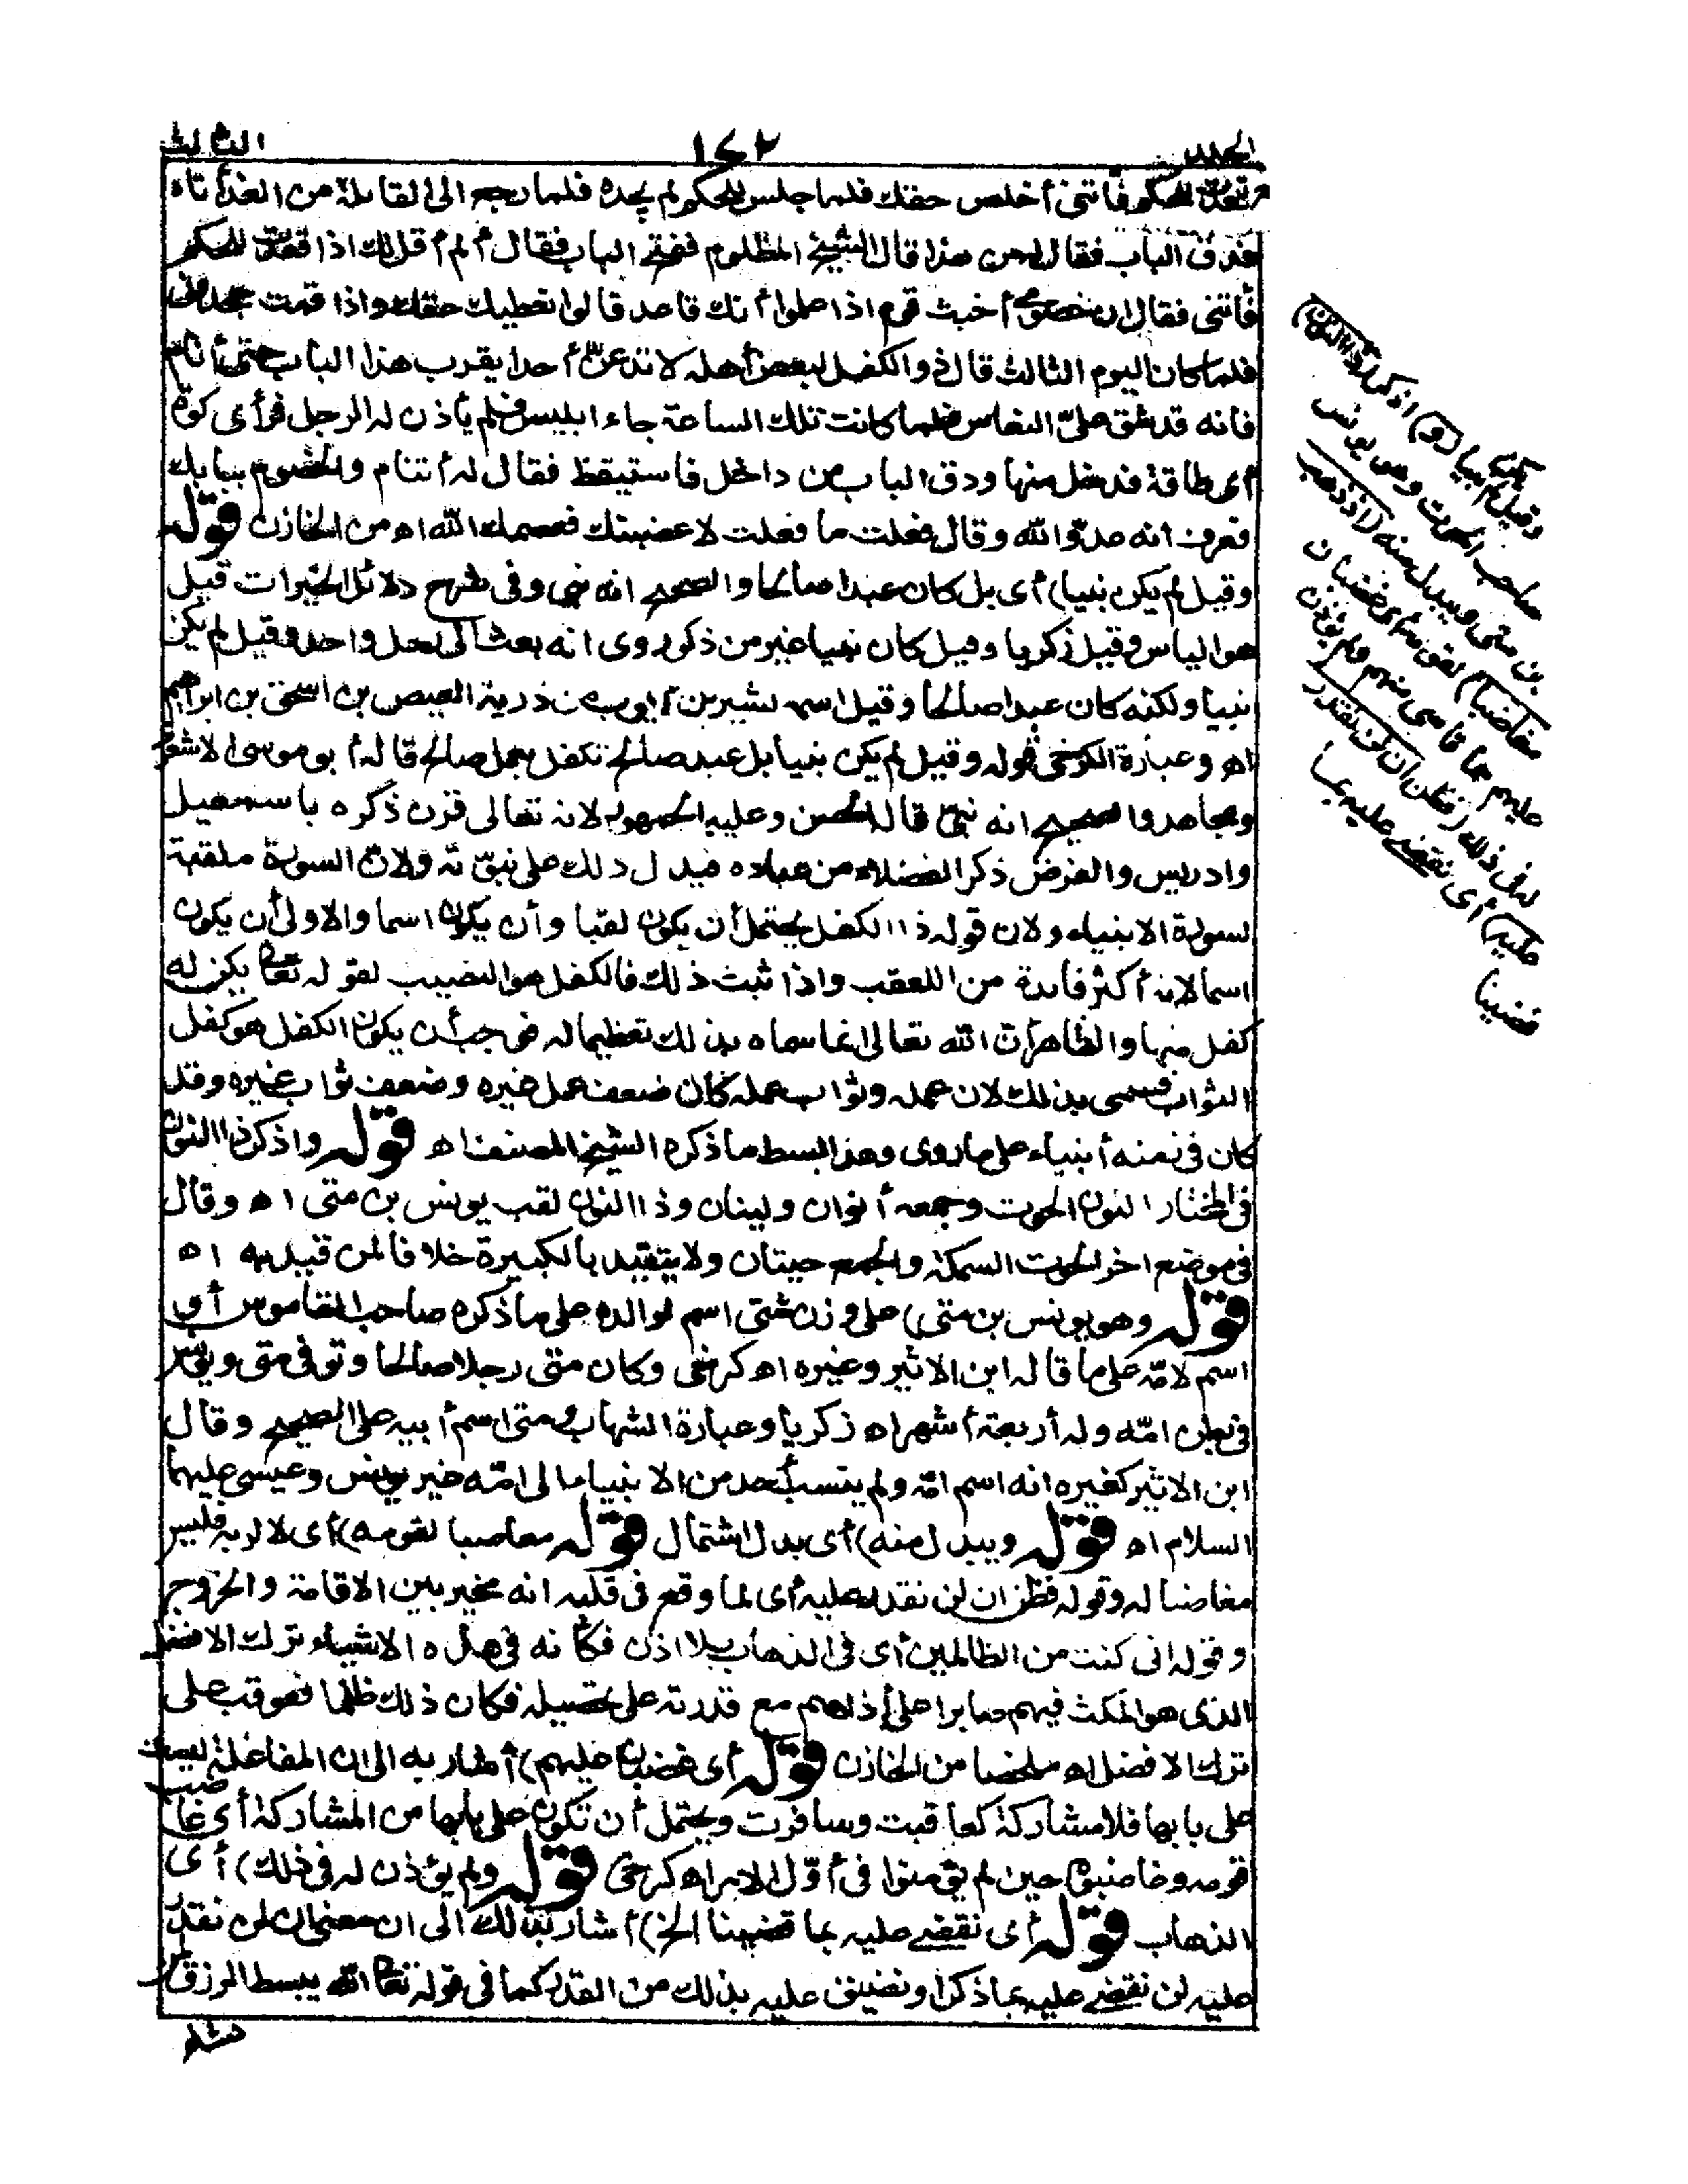 الجلد ١٤٢ الثالث
قعدت للحكم فأتنى أخلص حقك فلما جلس للحكم لم يجده فلما رجع الى القائلة من الغد أتاه
فدق الباب فقال له من هذا قال الشيخ المظلوم ففتح الباب فقال ألم أقل لك اذا قعدت للحكم
فأتنى فقال ان خصومى أخبث قوم اذا علموا أنك قاعد قالوا نعطيك حقك واذا قمت جحدونى
فلما كان اليوم الثالث قال ذو الكفل لبعض أهله لا تدعنّ أحدا يقرب هذا الباب حتى أنام
فانه قد شق علىّ النعاس فلما كانت تلك الساعة جاء ابليس فلم ياذن له الرجل فرأى كوّة
أى طاقة فدخل منها ودق الباب من داخل فاستيقظ فقال له أتنام والخصوم ببابك
فعرف انه عدوّ الله وقال فعلت ما فعلت لاغضبنك فعصمك الله اه من الخازن قوله
وقيل لم يكن نبيا) أى بل كان عبدا صالحا والصحيح انه نبى وفى شرح دلائل الخيرات قيل
هو الياس وقيل زكريا وقيل كان نبيا غير من ذكر وروى انه بعث الى رجل واحد وقيل لم يكن
نبيا ولكنه كان عبدا صالحا وقيل اسمه بشير بن أيوب من ذرية العيص بن اسحق بن ابراهيم
اه وعبارة الكرخى قوله وقيل لم يكن نبيا بل عبد صالح تكفل بعمل صالح قاله أبو موسى الاشعرى
ومجاهد والصحيح انه نبىّ قاله الحسن وعليه الجمهور لانه تعالى قرن ذكره باسمعيل
وادريس والغرض ذكر الفضلاء من عباده فيدل ذلك على نبوّته ولانّ السورة ملقبة
بسورة الانبياء ولان قوله ذا الكفل يحتمل أن يكون لقبا وأن يكون اسما والاولى أن يكون
اسما لانه أكثر فائدة من اللعقب واذا ثبت ذلك فالكفل هو النصيب لقوله تعالى يكن له
كفل منها والظاهر أن الله تعالى انما سماه بذلك تعظيما له فوجب أن يكون الكفل هو كفل
الثواب فسمى بذلك لان عمله وثواب عمله كان ضعف عمل غيره وضعف ثواب غيره وقد
كان فى زمنه أنبياء على ما روى وهذا ابسط ما ذكره الشيخ المصنف اه قوله واذكر ذا النون
فى المختار النون الحوت وجمعه أنوان ونينان وذا النون لقب يونس بن متى اه وقال
فى موضع اخر الحوت السمكة والجمع حيتان ولا يتقيد بالكبيرة خلافا لمن قيد به اه
قوله وهو يونس بن متى) على وزن شتى اسم لوالده على ما ذكره صاحب القاموس أو
اسم لامّه على ما قاله ابن الاثير وغيره اه كرخى وكان متى رجلا صالحا وتوفى متى ويونس
فى بطن امّه وله أربعة أشهر اه زكريا وعبارة الشهاب ومتى اسم أبيه على الصحيح وقال
ابن الاثير كغيره انه اسم امّه ولم ينسب أحد من الانبياء الى امّه غير يونس وعيسى عليهما
السلام اه قوله ويبدل منه) أى بدل اشتمال قوله مغاضبا لقومه) أى لا لربه فليس
مغاضبا له وقوله فظن ان لن نقدر عليه أى لما وقع فى قلبه انه مخير بين الاقامة والخروج
وقوله انى كنت من الظالمين أى فى الذهاب بلا اذن فكأنه فى هذه الاشياء ترك الافضل
الذى هو المكث فيهم صابرا على أذاهم مع قدرته على تحصيله فكان ذلك ظلما فعوقب على
ترك الافضل اه ملخصا من الخازن قوله أى غضبان عليهم) أشار به الى ان المفاعلة ليست
على بابها فلا مشاركة كعاقبت وسافرت ويحتمل أن تكون على بابها من المشاركة أى غاضب
قومه وغاضبوه حين لم يؤمنوا فى أوّل الامر اه كرخى قوله ولم يؤذن له فى ذلك) أى
الذهاب قوله أى نقضى عليه بما قضينا الخ) أشار بذلك الى ان معنى ان لن نقدر
عليه لن نقضى عليه بما ذكر أو نضيق عليه بذلك من القدر كما فى قوله تعالى الله يبسط الرزق لمن
يشاء
وقيل لم يكن نبيا (و) اذكر (ذا النون)
صاحب الحوت وهو يونس
بن متى ويبدل منه (اذ ذهب
مغاضبا) لقومه أى غضبان
عليهم مما قاسى منهم ولم يؤذن
له فى ذلك (فظن أن لن نقدر
عليه) أى نقضى عليه بما
قضينا